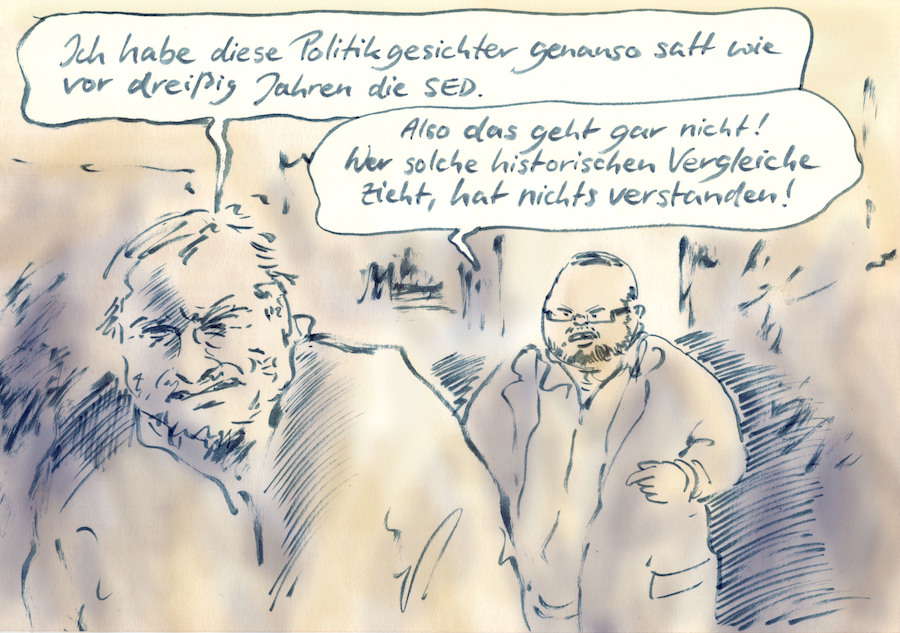 Ich habe diese Politikgesichter genauso satt wie
vor dreißig Jahren die SED.
Also das geht gar nicht!
Wer solche historischen Vergleiche
zieht, hat nichts verstanden!